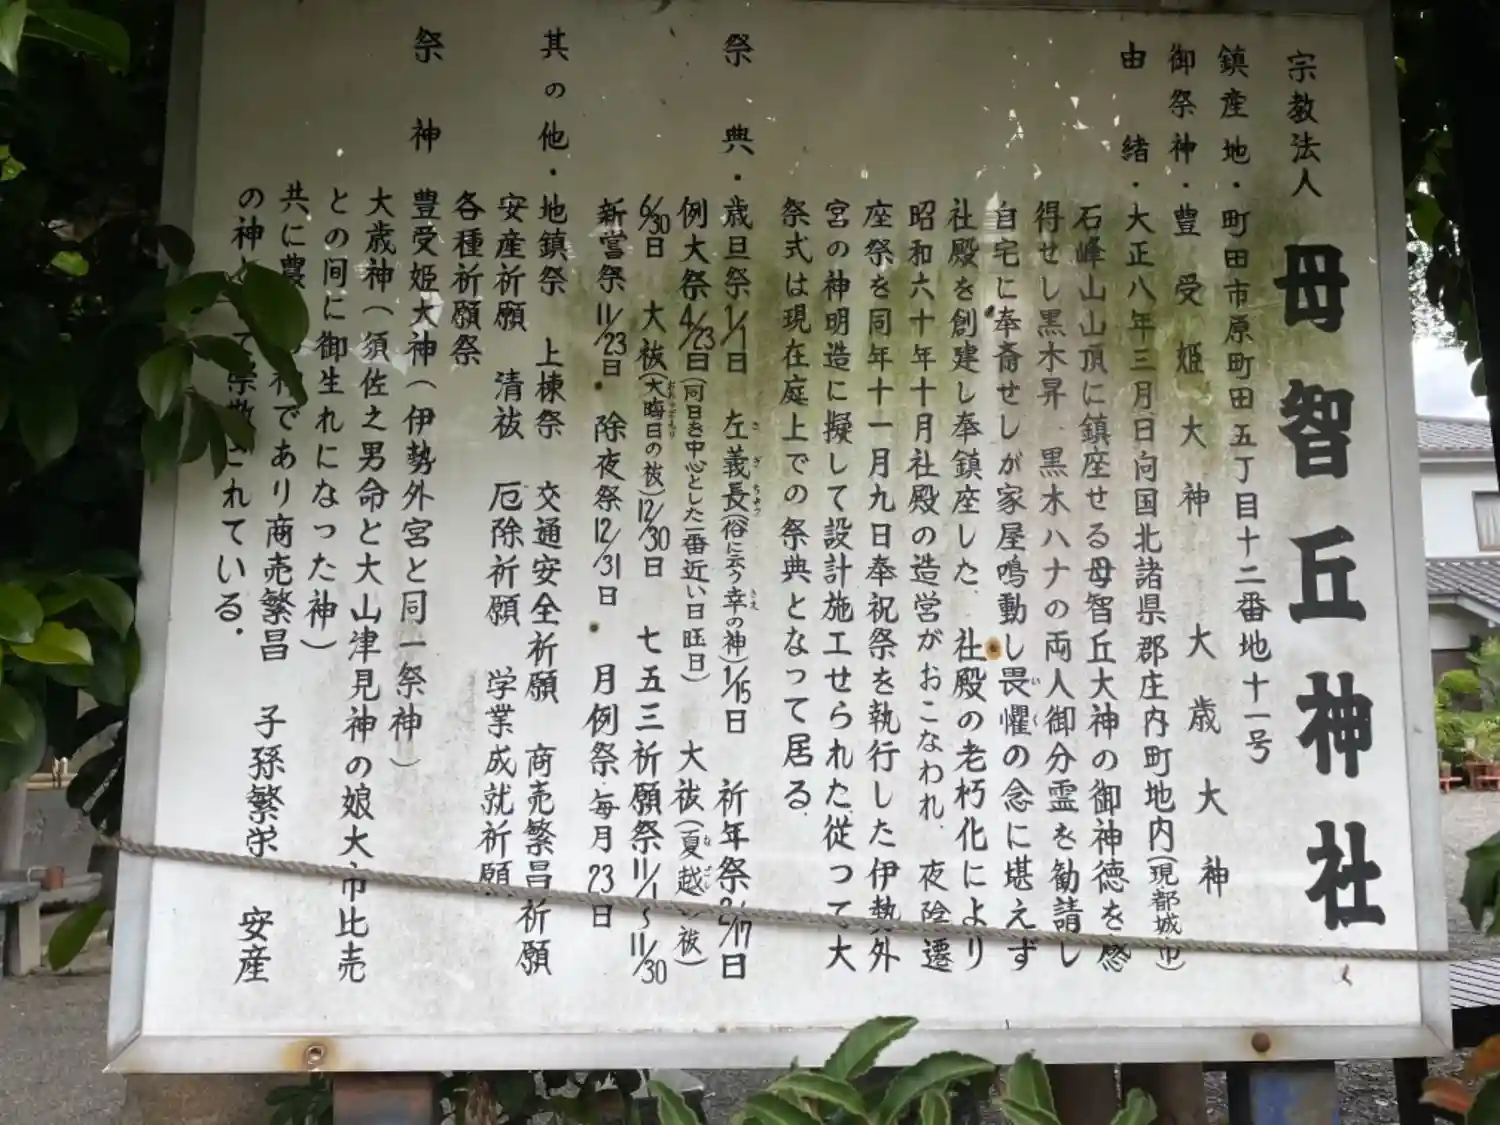 宗教法人 母智丘神社
鎮産地・町田市原町田五丁目十二番地十一号
御祭神・豊受姫大神 大歳大神
由緒・大正八年三月日向国北諸県郡庄内町地内(現都城市)
石峰山山頂に鎮座せる母智丘大神の御神徳を感
得せし黒木昇 黒木ハナの両人御分霊を勧請し
自宅に奉斎せしが家屋鳴動し畏懼の念に堪えず
社殿を創建し奉鎮座した. 社殿の老朽化により
昭和六十年十月社殿の造営がおこなわれ. 夜陰遷
座祭を同年十一月九日奉祝祭を執行した伊勢外
宮の神明造に擬して設計施工せられた従って大
祭式は現在庭上での祭典となって居る.
祭典・歳旦祭1/1日 左義長(俗に云う幸の神)1/15日 祈年祭2/17日
例大祭4/23日(同日を中心とした一番近い日曜日) 大祓(夏越の祓)
6/30日 大祓(大晦日の祓)12/30日 七五三祈願祭11/1~11/30
新嘗祭11/23日・除夜祭12/31日・月例祭・毎月23日
其の他・地鎮祭 上棟祭 交通安全祈願 商売繁昌祈願
安産祈願 清祓 厄除祈願 学業成就祈願
各種祈願祭
祭神 豊受姫大神(伊勢外宮と同一祭神)
大歳神(須佐之男命と大山津見神の娘大市比売
との間に御生れになった神)
共に農 神であり商売繁昌 子孫繁栄 安産
の神 て崇敬されている.